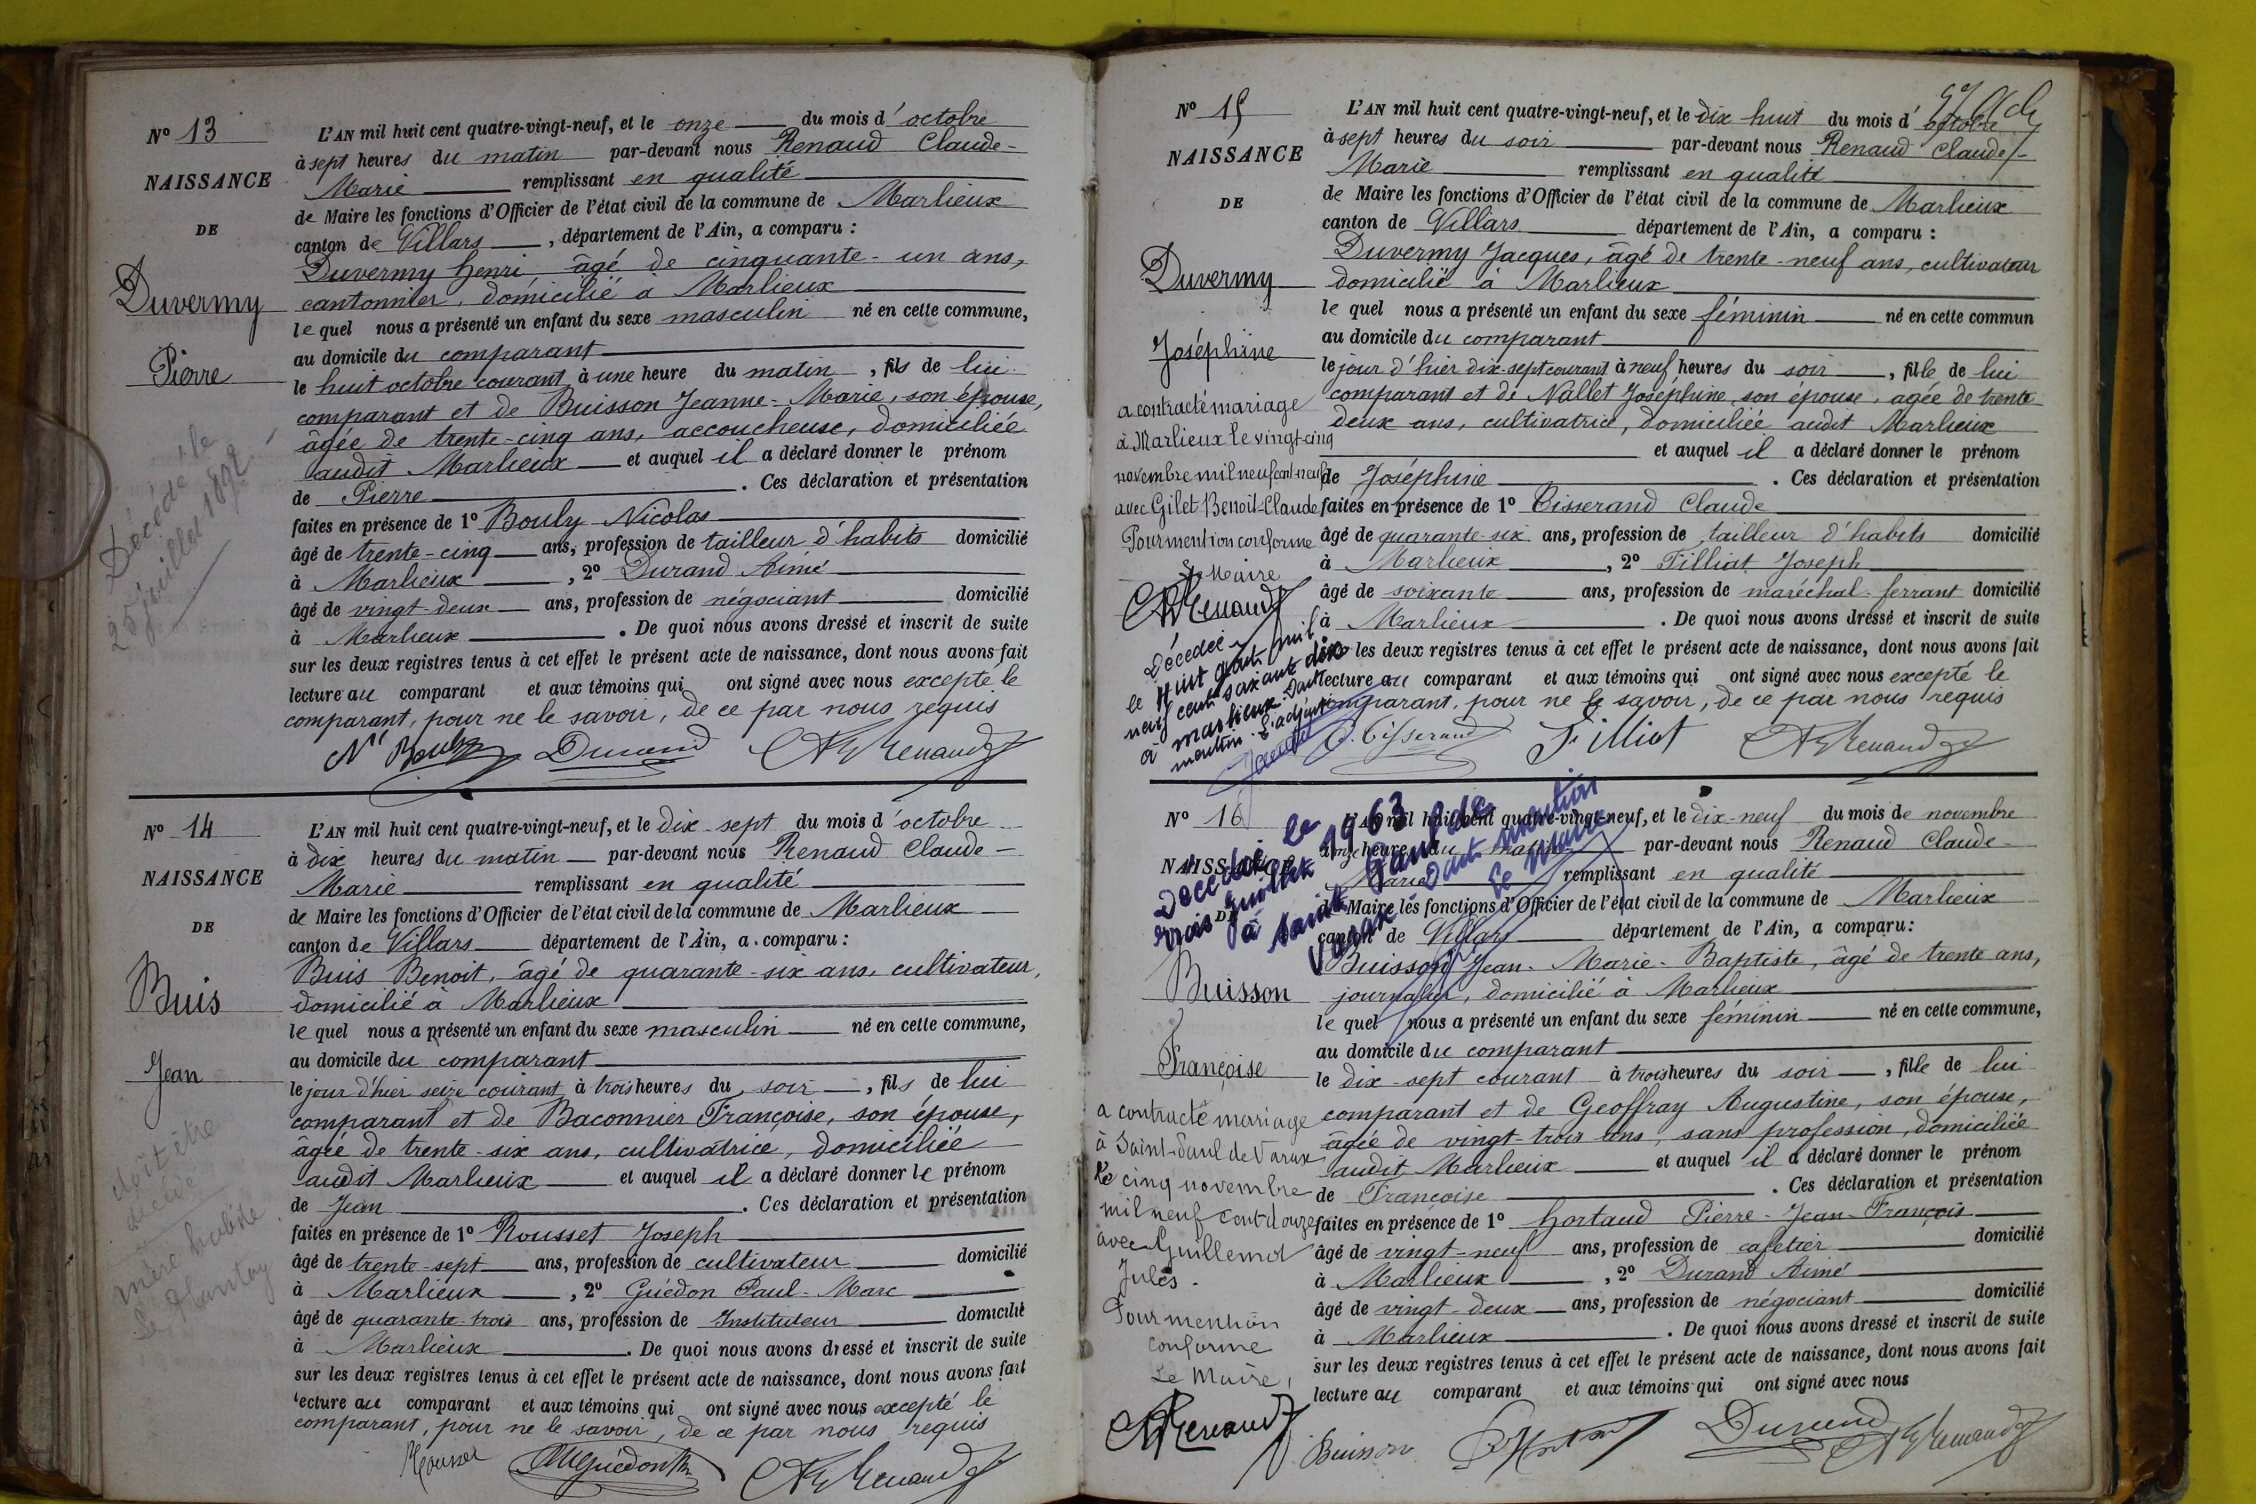 N° 13
NAISSANCE
DE
Duvermy
Pierre
Décédé le
25 juillet 1892
L'AN mil huit cent quatre-vingt-neuf, et le onze du mois d'octobre
à sept heures du matin par-devant nous Renaud Claude-
Marie remplissant en qualité
de Maire les fonctions d'Officier de l'état civil de la commune de Marlieux
canton de Villars, département de l'Ain, a comparu :
Duvermy Henri, âgé de cinquante-un ans,
cantonnier, domicilié a Marlieux
lequel nous a présenté un enfant du sexe masculin né en cette commune,
au domicile du comparant
le huit octobre courant à une heure du matin, fils de lui
comparant et de Buisson Jeanne-Marie, son épouse,
âgée de trente-cinq ans, accoucheuse, domiciliée
audit Marlieux et auquel il a déclaré donner le prénom
de Pierre. Ces déclaration et présentation
faites en présence de 1° Bouly Nicolas
âgé de trente-cinq ans, profession de tailleur d'habits domicilié
à Marlieux, 2° Durand Aimé
âgé de vingt-deux ans, profession de négociant domicilié
à Marlieux. De quoi nous avons dressé et inscrit de suite
sur les deux registres tenus à cet effet le présent acte de naissance, dont nous avons fait
lecture au comparant et aux témoins qui ont signé avec nous excepté le
comparant, pour ne le savoir, de ce par nous requis
N Bouly Durand Renaud
N° 14
NAISSANCE
DE
Buis
Jean
doit être
décédé
mère habite
le Plantay
L'AN mil huit cent quatre-vingt-neuf, et le dix-sept du mois d'octobre
à dix heures du matin par-devant nous Renaud Claude-
Marie remplissant en qualité
de Maire les fonctions d'Officier de l'état civil de la commune de Marlieux
canton de Villars département de l'Ain, a comparu :
Buis Benoit, âgé de quarante-six ans, cultivateur,
domicilié à Marlieux
lequel nous a présenté un enfant du sexe masculin né en cette commune,
au domicile du comparant
le jour d'hier seize courant à trois heures du soir, fils de lui
comparant et de Baconnier Françoise, son épouse,
âgée de trente-six ans, cultivatrice, domiciliée
audit Marlieux et auquel il a déclaré donner le prénom
de Jean. Ces déclaration et présentation
faites en présence de 1° Rousset Joseph
âgé de trente-sept ans, profession de cultivateur domicilié
à Marlieux, 2° Guédon Paul-Marc
âgé de quarante-trois ans, profession de Instituteur domicilié
à Marlieux. De quoi nous avons dressé et inscrit de suite
sur les deux registres tenus à cet effet le présent acte de naissance, dont nous avons fait
lecture au comparant et aux témoins qui ont signé avec nous excepté le
comparant, pour ne le savoir, de ce par nous requis
Rousset Guédon Renaud
N° 15
NAISSANCE
DE
Duvermy
Joséphine
a contracté mariage
à Marlieux le vingt-cinq
novembre mil neuf cent-neuf
avec Gilet Benoit-Claude
Pour mention conforme
Le Maire
Renaud
Décédée
le Huit août mil
neuf cent soixante dix
à Marlieux. Dont
mention. L'adjoint
L'AN mil huit cent quatre-vingt-neuf, et le dix huit du mois d'octobre
à sept heures du soir par-devant nous Renaud Claude-
Marie remplissant en qualité
de Maire les fonctions d'Officier de l'état civil de la commune de Marlieux
canton de Villars département de l'Ain, a comparu :
Duvermy Jacques, âgé de trente-neuf ans, cultivateur
domicilié à Marlieux
lequel nous a présenté un enfant du sexe féminin né en cette commun
au domicile du comparant
le jour d'hier dix-sept courant à neuf heures du soir, fille de lui
comparant et de Nallet Joséphine, son épouse, agée de trente
deux ans, cultivatrice, domiciliée audit Marlieux
et auquel il a déclaré donner le prénom
de Joséphine. Ces déclaration et présentation
faites en présence de 1° Tisserand Claude
âgé de quarante-six ans, profession de tailleur d'habits domicilié
à Marlieux, 2° Tilliat Joseph
âgé de soixante ans, profession de maréchal-ferrant domicilié
à Marlieux. De quoi nous avons dressé et inscrit de suite
les deux registres tenus à cet effet le présent acte de naissance, dont nous avons fait
lecture au comparant et aux témoins qui ont signé avec nous excepté le
comparant, pour ne le savoir, de ce par nous requis
C. Tisserand Renaud
N° 16
NAISSANCE
DE
Buisson
Françoise
Décédée le
trois juillet 1963
à Saint Paul de
Varax. Dont mention
Le Maire
a contracté mariage
à Saint-Paul de Varax
le cinq novembre
mil neuf cent douze
avec Guillemot
Jules.
Pour mention
conforme
Le Maire,
Renaud
L'AN mil huit cent quatre-vingt-neuf, et le dix-neuf du mois de novembre
à onze heures du matin par-devant nous Renaud Claude-
Marie remplissant en qualité
de Maire les fonctions d'Officier de l'état civil de la commune de Marlieux
canton de Villars département de l'Ain, a comparu :
Buisson Jean-Marie-Baptiste, âgé de trente ans,
journalier, domicilié à Marlieux
lequel nous a présenté un enfant du sexe féminin né en cette commune,
au domicile du comparant
le dix-sept courant à trois heures du soir, fille de lui
comparant et de Geoffray Augustine, son épouse,
âgée de vingt-trois ans, sans profession, domiciliée
audit Marlieux et auquel il a déclaré donner le prénom
de Françoise. Ces déclaration et présentation
faites en présence de 1° Hortaud Pierre-Jean-François
âgé de vingt-neuf ans, profession de cafetier domicilié
à Marlieux, 2° Durand Aimé
âgé de vingt-deux ans, profession de négociant domicilié
à Marlieux. De quoi nous avons dressé et inscrit de suite
sur les deux registres tenus à cet effet le présent acte de naissance, dont nous avons fait
lecture au comparant et aux témoins qui ont signé avec nous
Buisson Durand Renaud